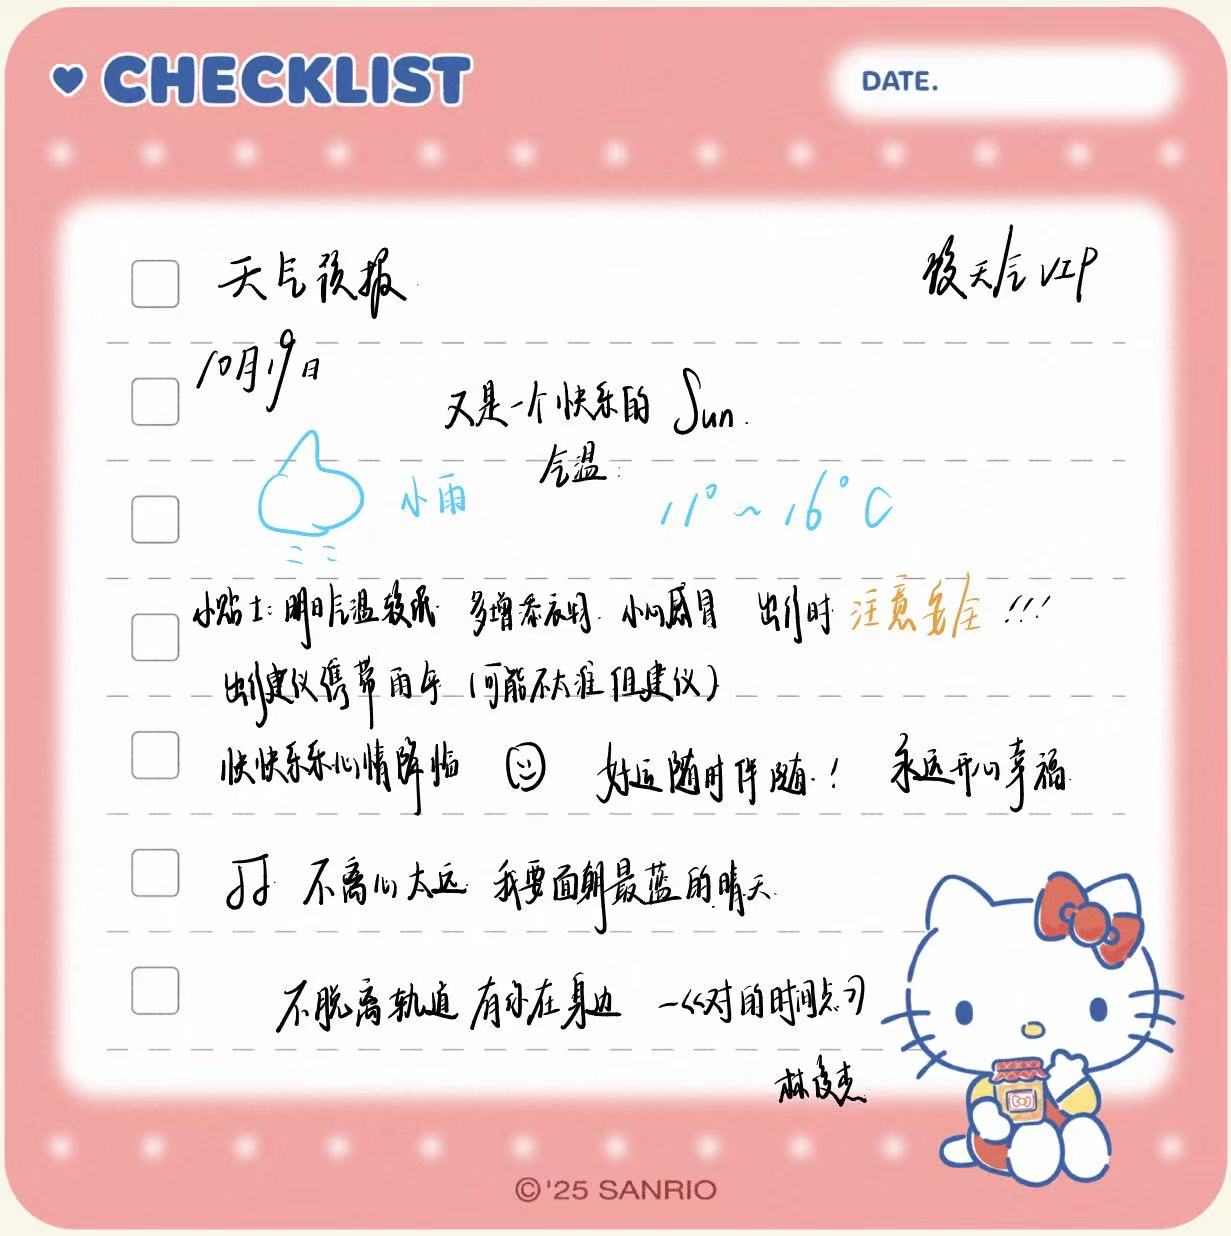 CHECKLIST
DATE.
天气预报
天气VIP
10月19日
又是一个快乐的 Sun.
气温:
小雨 11°~16°C
小贴士: 明日气温较低 多增添衣物. 小心感冒 出行时 注意安全 !!!
出行建议携带雨伞 (可能不太准但建议)
快快乐乐心情降临 好运随时伴随! 永远开心幸福.
不离心太远 我要面朝最蓝的晴天.
不脱离轨道 有你在身边 —《对的时间点》
林俊杰
©'25 SANRIO